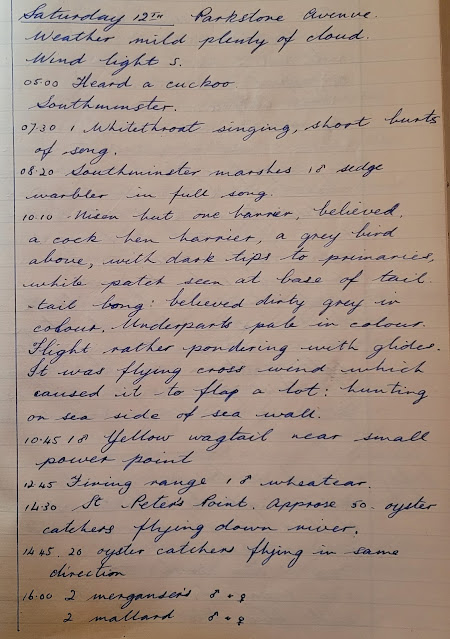 Saturday 12TH Parkstone Avenue.
Weather mild plenty of cloud.
Wind light S.
05.00 Heard a cuckoo
Southminster.
07.30 1 Whitethroat singing, short bursts
of song.
08.20 Southminster marshes 1 ♂ sedge
warbler in full song.
10.10 Nisen hut one harrier, believed,
a cock hen harrier, a grey bird
above, with dark tips to primaries,
white patch seen at base of tail
-tail long: believed dirty grey in
colour. Underparts pale in colour.
Flight rather pondering with glides.
It was flying cross wind which
caused it to flap a lot: hunting
on sea side of sea wall.
10.45 1 ♂ Yellow wagtail near small
power point
12.45 Firing range 1 ♂ wheatear.
14.30 St Peter's Point. Approse 50. oyster
catchers flying down river.
14.45. 20 oyster catchers flying in same
direction
16.00 2 merganser's ♂ + ♀
2 mallard ♂ + ♀